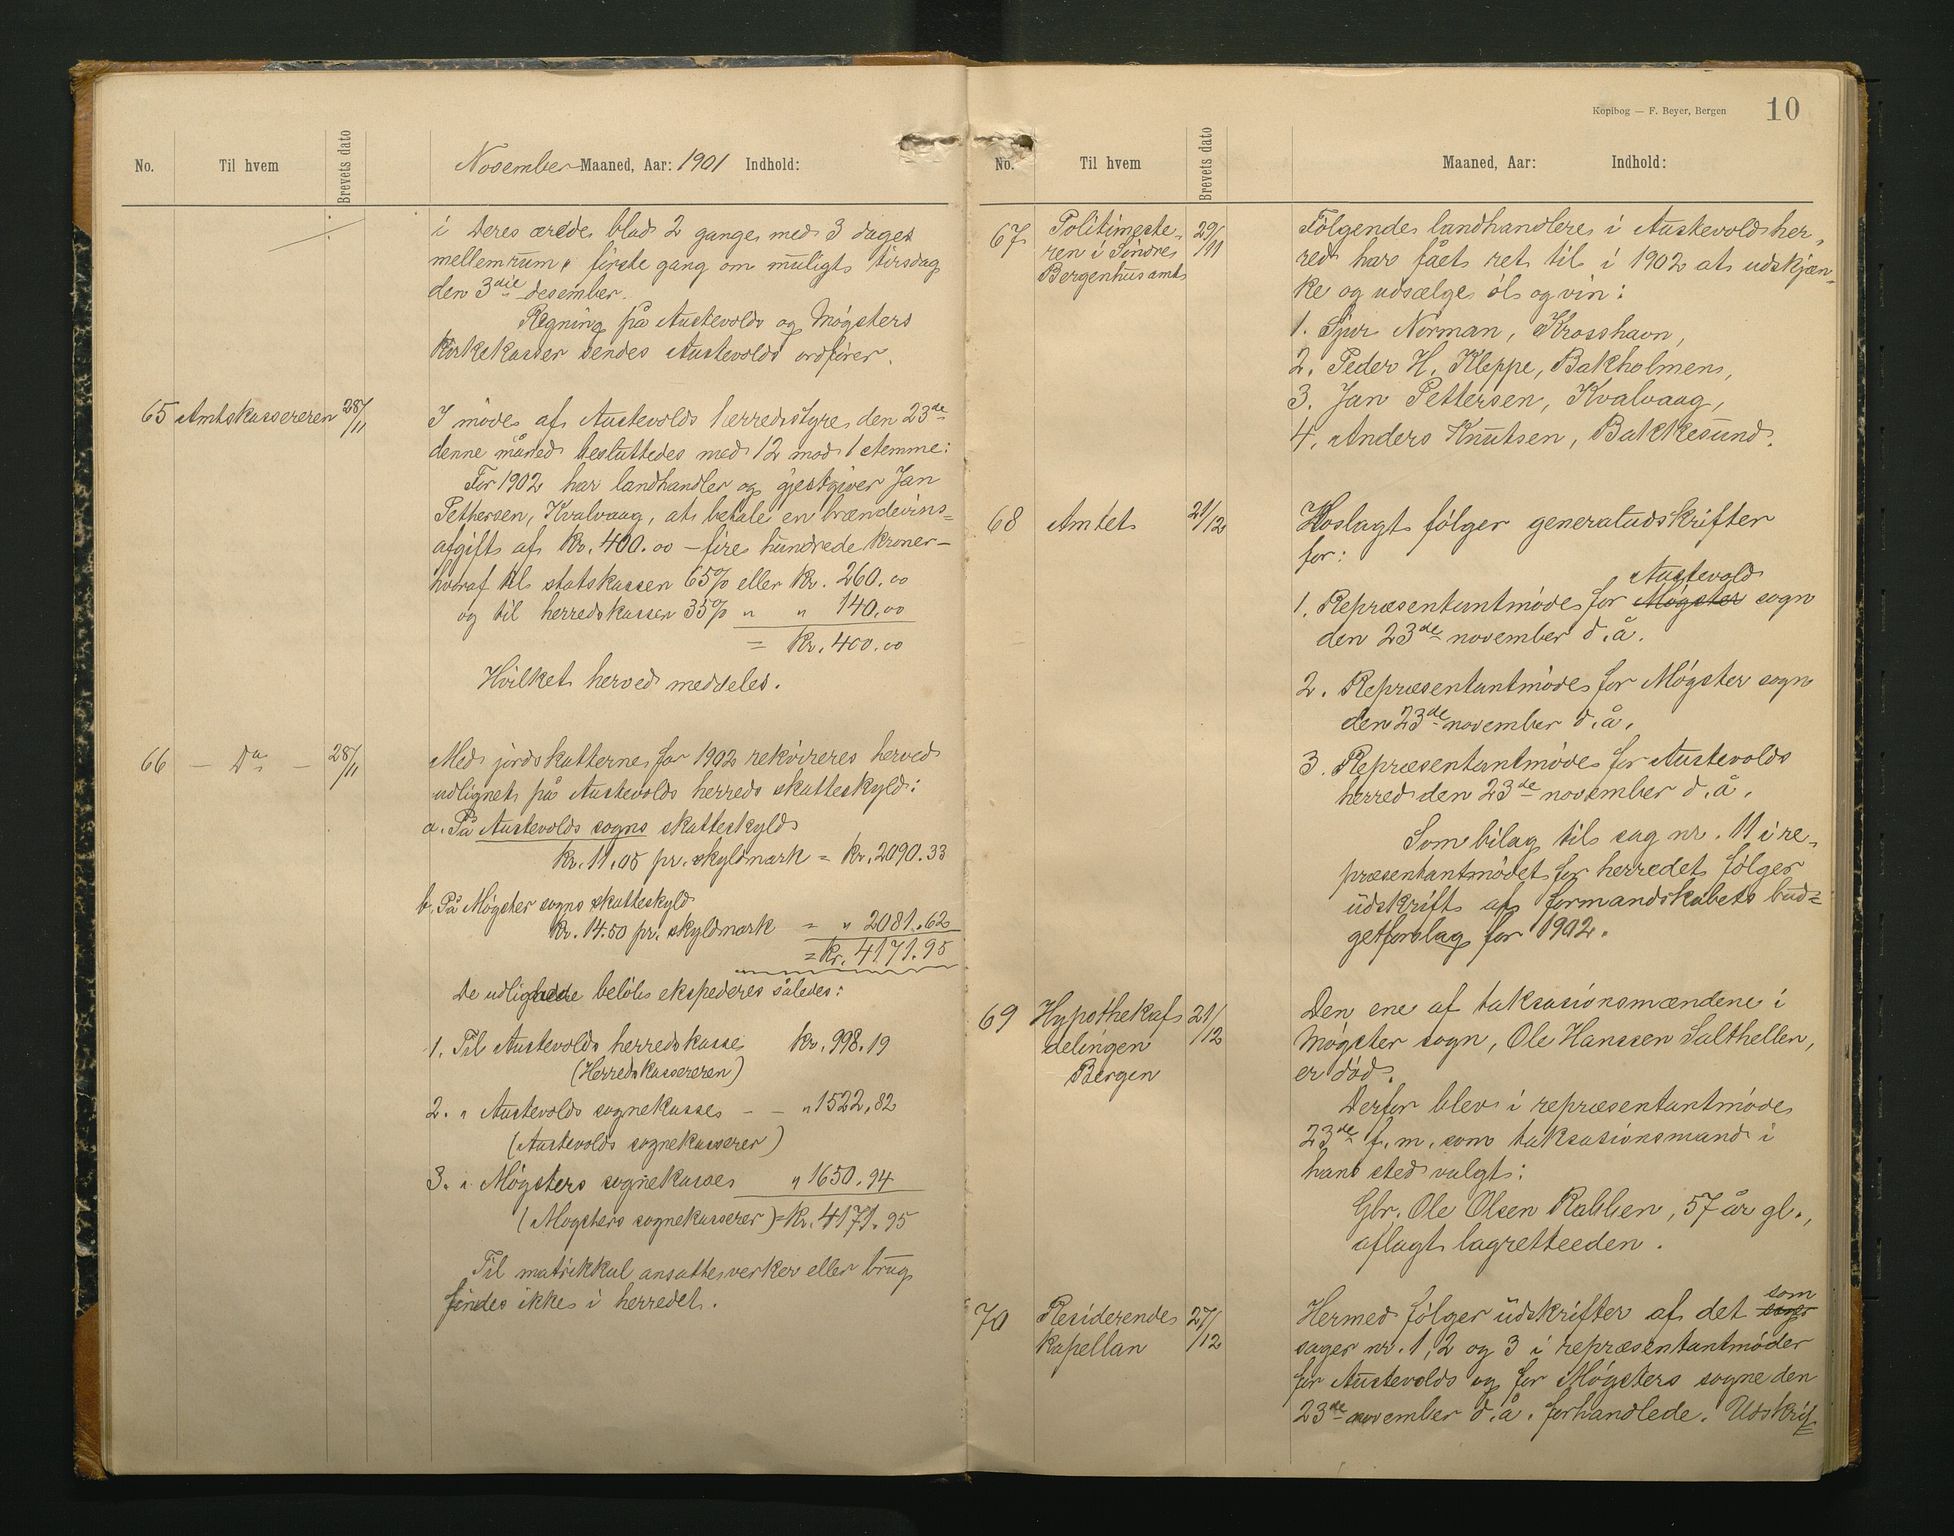 No. Til hvem Brevets dato November Maaned, Aar: 1901 Indhold:
i Deres ærede blad 2 gange med 3 dages
mellemrum, første gang om muligt tirsdag
den 3die desember.
Regning på Austevolds og Møgsters
kirkekasser sendes Austevolds ordfører.
65 Amtskassereren 28/11 I møde af Austevolds herredsstyre den 23de
denne måned besluttedes med 12 mod 1 stemme:
For 1902 har landhandler og gjestgiver Jan
Pettersen, Kvalvaag, at betale en brændevins=
afgift af kr. 400.00 – fire hundrede kroner –
hvoraf til statskassen 65% eller kr. 260.00
og til herredskassen 35% " " 140.00
= kr. 400.00
Hvilket herved meddeles.
66 – Do – 28/11 Med jordskatterne for 1902 rekvireres herved
udlignet på Austevolds herreds skatteskyld:
a. På Austevolds sogns skatteskyld
kr. 11.05 pr. skyldmark = kr. 2090.33
b. På Møgster sogns skatteskyld
kr. 14.50 pr. skyldmark = " 2081.62
= kr. 4171.95
De udlignede beløb ekspederes således:
1. Til Austevolds herredskasse kr. 998.19
(Herredskassereren)
2. " Austevolds sognekasse – – " 1522,82
(Austevolds sognekasserer)
3. " Møgsters sognekasse " 1650.94
(Møgsters sognekasserer) = kr. 4171.95
Til matrikkul ansatte verker eller brug
findes ikke i herredet.
Kopibog — F. Beyer, Bergen 10
No. Til hvem Brevets dato Maaned, Aar: Indhold:
67 Politimeste- 29/11 Følgende landhandlere i Austevold her-
ren i Søndre red har fået ret til i 1902 at udskjæn-
Bergenhus amt ke og udsælge øl og vin:
1. Sjur Norman, Krosshavn,
2. Peder H. Kleppe, Bakholmen,
3. Jan Pettersen, Kvalvaag,
4. Anders Knutsen, Bakkesund.
68 Amtet 21/12 Hoslagt følger generaludskrifter
for:
Austevold
1. Repræsentantmøde for Møgster sogn
den 23de november d.å.
2. Repræsentantmøde for Møgster sogn
den 23de november d.å.
3. Repræsentantmøde for Austevolds
herred den 23de november d.å.
Som bilag til sag nr. 11 i re-
præsentantmødet for herredet følger
udskrift af formandskabets bud=
getforslag for 1902.
69 Hypothekaf 21/12 Den ene af taksasionsmændene i
delingen Møgster sogn, Ole Hanssen Salthellen,
Bergen er død.
Derfor blev i repræsentantmøde
23de f.m. som taksasionsmand i
hans sted valgt:
Gbr. Ole Olsen Rabben, 57 år gl.,
aflagt lagretteeden.
som
70 Residerende 27/12 Hermed følger udskrifter af det sager
kapellan sager nr. 1, 2 og 3 i repræsentantmøder
for Austevolds og for Møgsters sogne den
23de november d.å. forhandlede. Udskrif=